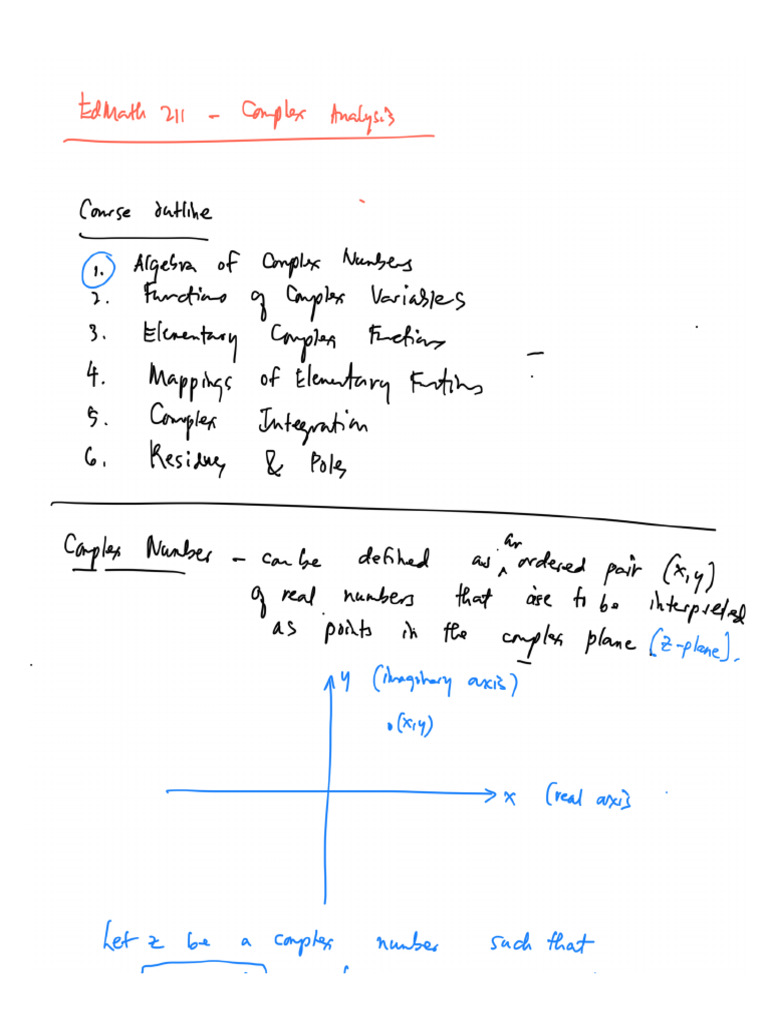 EdMath 211 - Complex Analysis
Course outline
1. Algebra of Complex Numbers
2. Functions of Complex Variables
3. Elementary Complex Functions
4. Mappings of Elementary Functions
5. Complex Integration
6. Residues & Poles
Complex Number - can be defined as an ordered pair (x,y)
of real numbers that are to be interpreted
as points in the complex plane (z-plane).
y (imaginary axis)
(x,y)
x (real axis
Let z be a complex number such that